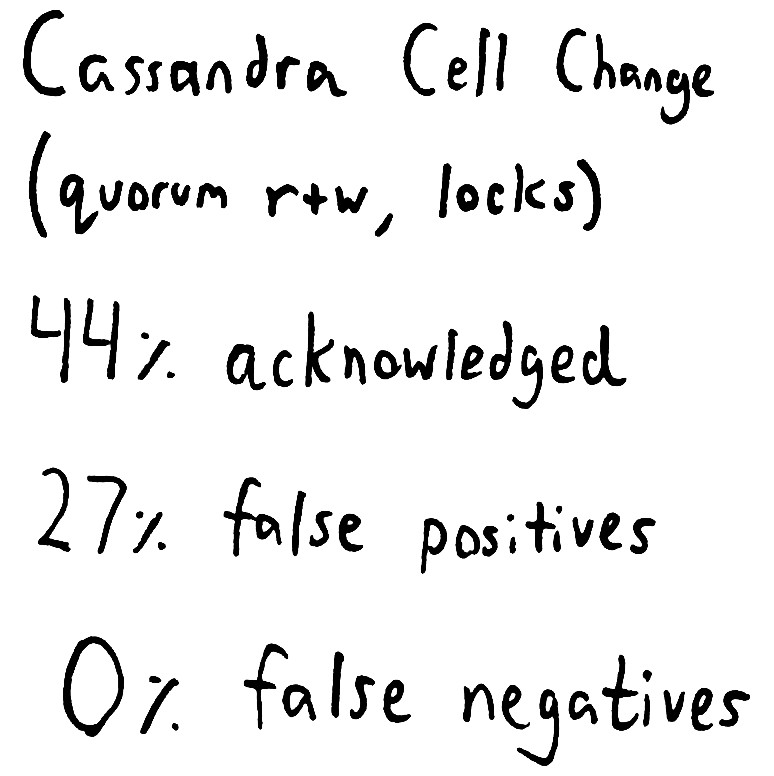 Cassandra Cell Change
(quorum r+w, locks)
44% acknowledged
27% false positives
0% false negatives